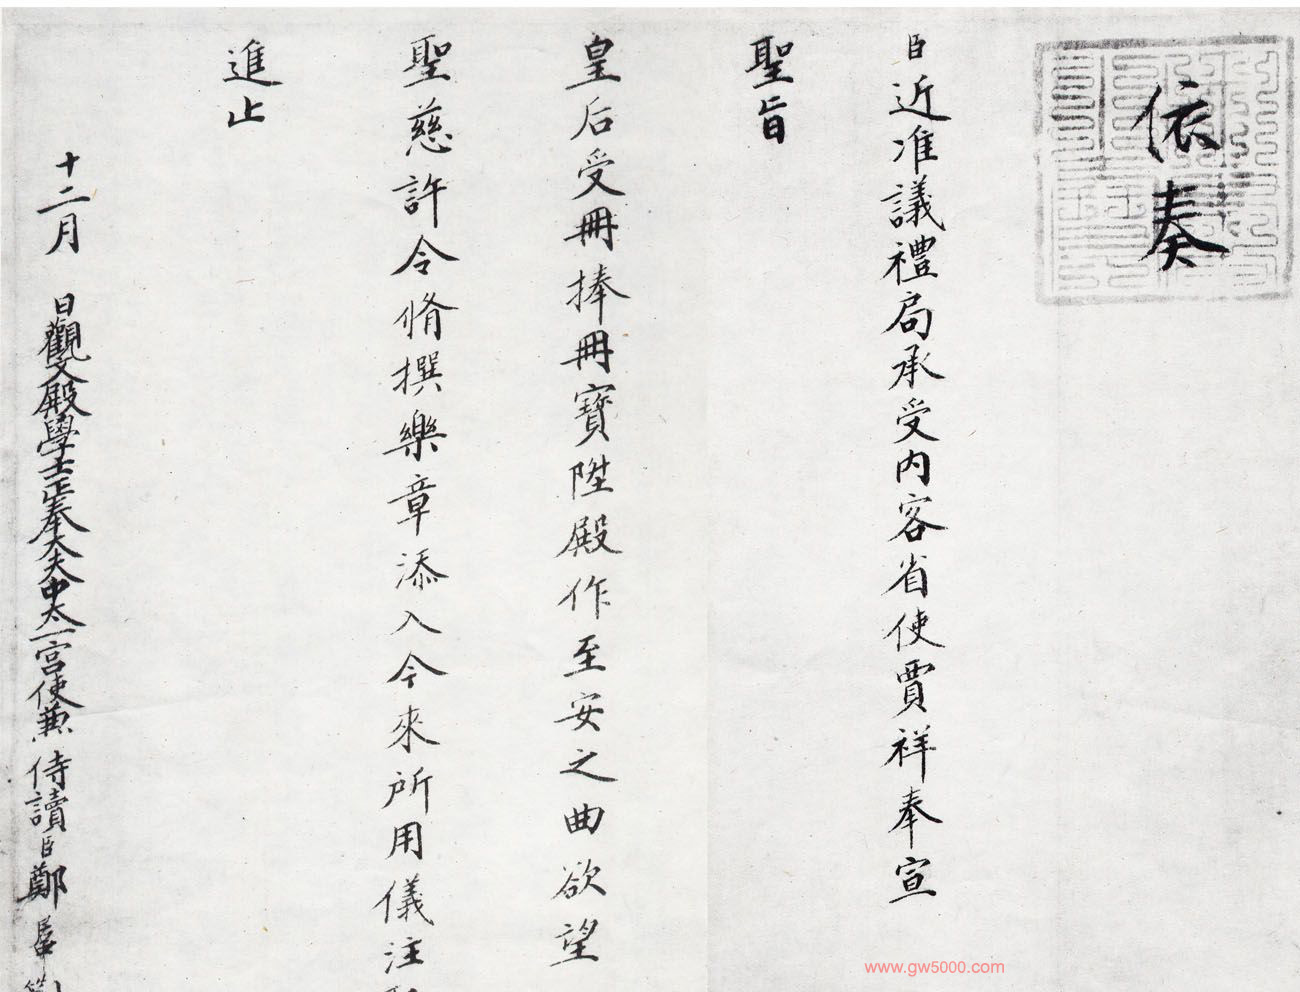 依奏
臣近准議禮局承受內客省使賈祥奉宣
聖旨
皇后受冊捧冊寶陞殿作至安之曲欲望
聖慈許令脩撰樂章添入今來所用儀注
進止
十二月 日觀文殿學士正奉大夫中太一宮使兼侍讀臣鄭居中
www.gw5000.com